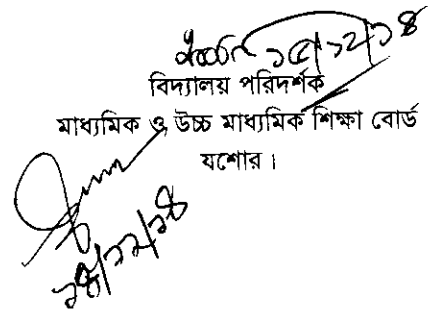 ১৫/১২/১৪
বিদ্যালয় পরিদর্শক
মাধ্যমিক ও উচ্চ মাধ্যমিক শিক্ষা বোর্ড
যশোর।